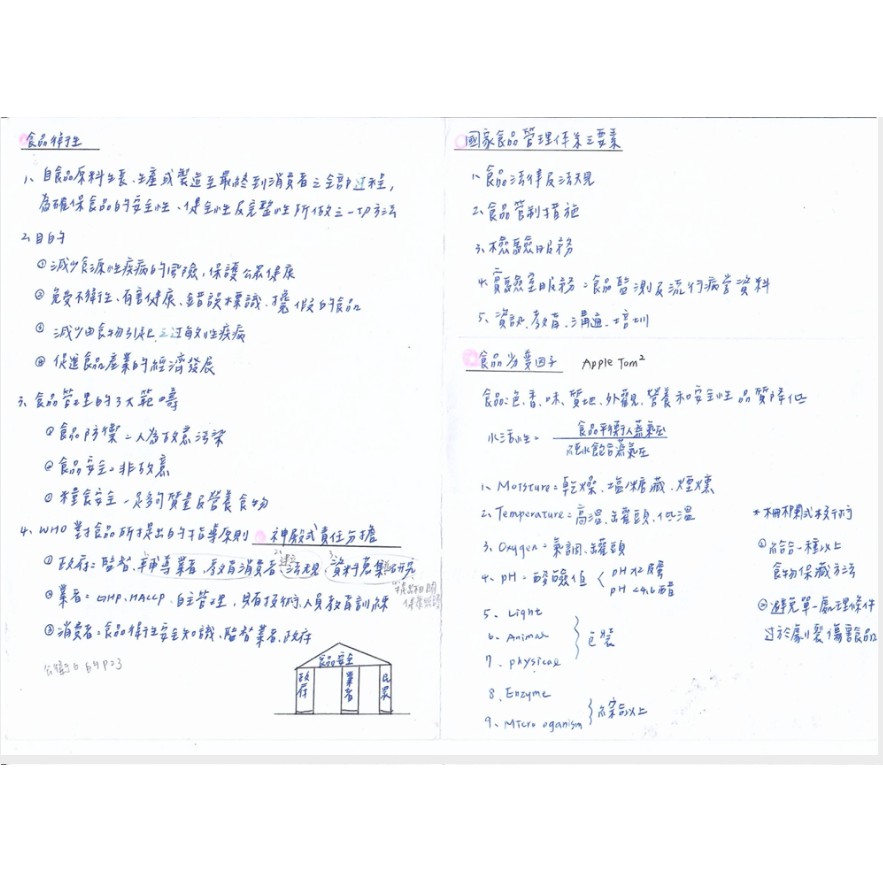 食品衛生
1、自食品原料生長、生產或製造至最終到消費者之全部過程，
為確保食品的安全性、健全性及完整性所做之一切方法
2、目的
①減少食源性疾病的風險，保護公眾健康
②免受不衛生、有害健康、錯誤標識、攙假的食品
③減少由食物引起之過敏性疾病
④促進食品產業的經濟發展
3、食品管理的3大範疇
①食品防禦=人為故意污染
②食品安全=非故意
③糧食安全=足夠質量及營養食物
4、WHO對食品所提出的指導原則 神殿式責任分擔
①政府=監督、輔導業者、教育消費者、法規、資料蒐集研究
②業者=GHP、HACCP、自主管理，具有技術、人員教育訓練
③消費者=食品衛生安全知識、監督業者、政府
P23
食品安全
政府
業者
民眾
國家食品管理體系五要素
1、食品法律及法規
2、食品管制措施
3、檢驗服務
4、實驗室服務=食品監測及流行病學資料
5、資訊、教育、溝通、培訓
食品劣變因子 Apple Tom²
食品:色、香、味、質地、外觀、營養和安全性品質降低
水活性= 食品平衡水蒸氣壓
純水飽和蒸氣壓
1、Moisture=乾燥、塩糖藏、煙燻
2、Temperature=高溫、罐頭、低溫
3、Oxygen=氣調、罐頭
4、pH=酸鹼值 < pH
pH <4.6 醋
5、Light
6、Animal } 包裝
7、physical
8、Enzyme
9、Micro oganism } 綜合以上
*柵欄式技術
①結合一種以上
食物保藏方法
②避免單一處理條件
過於劇烈傷害食品